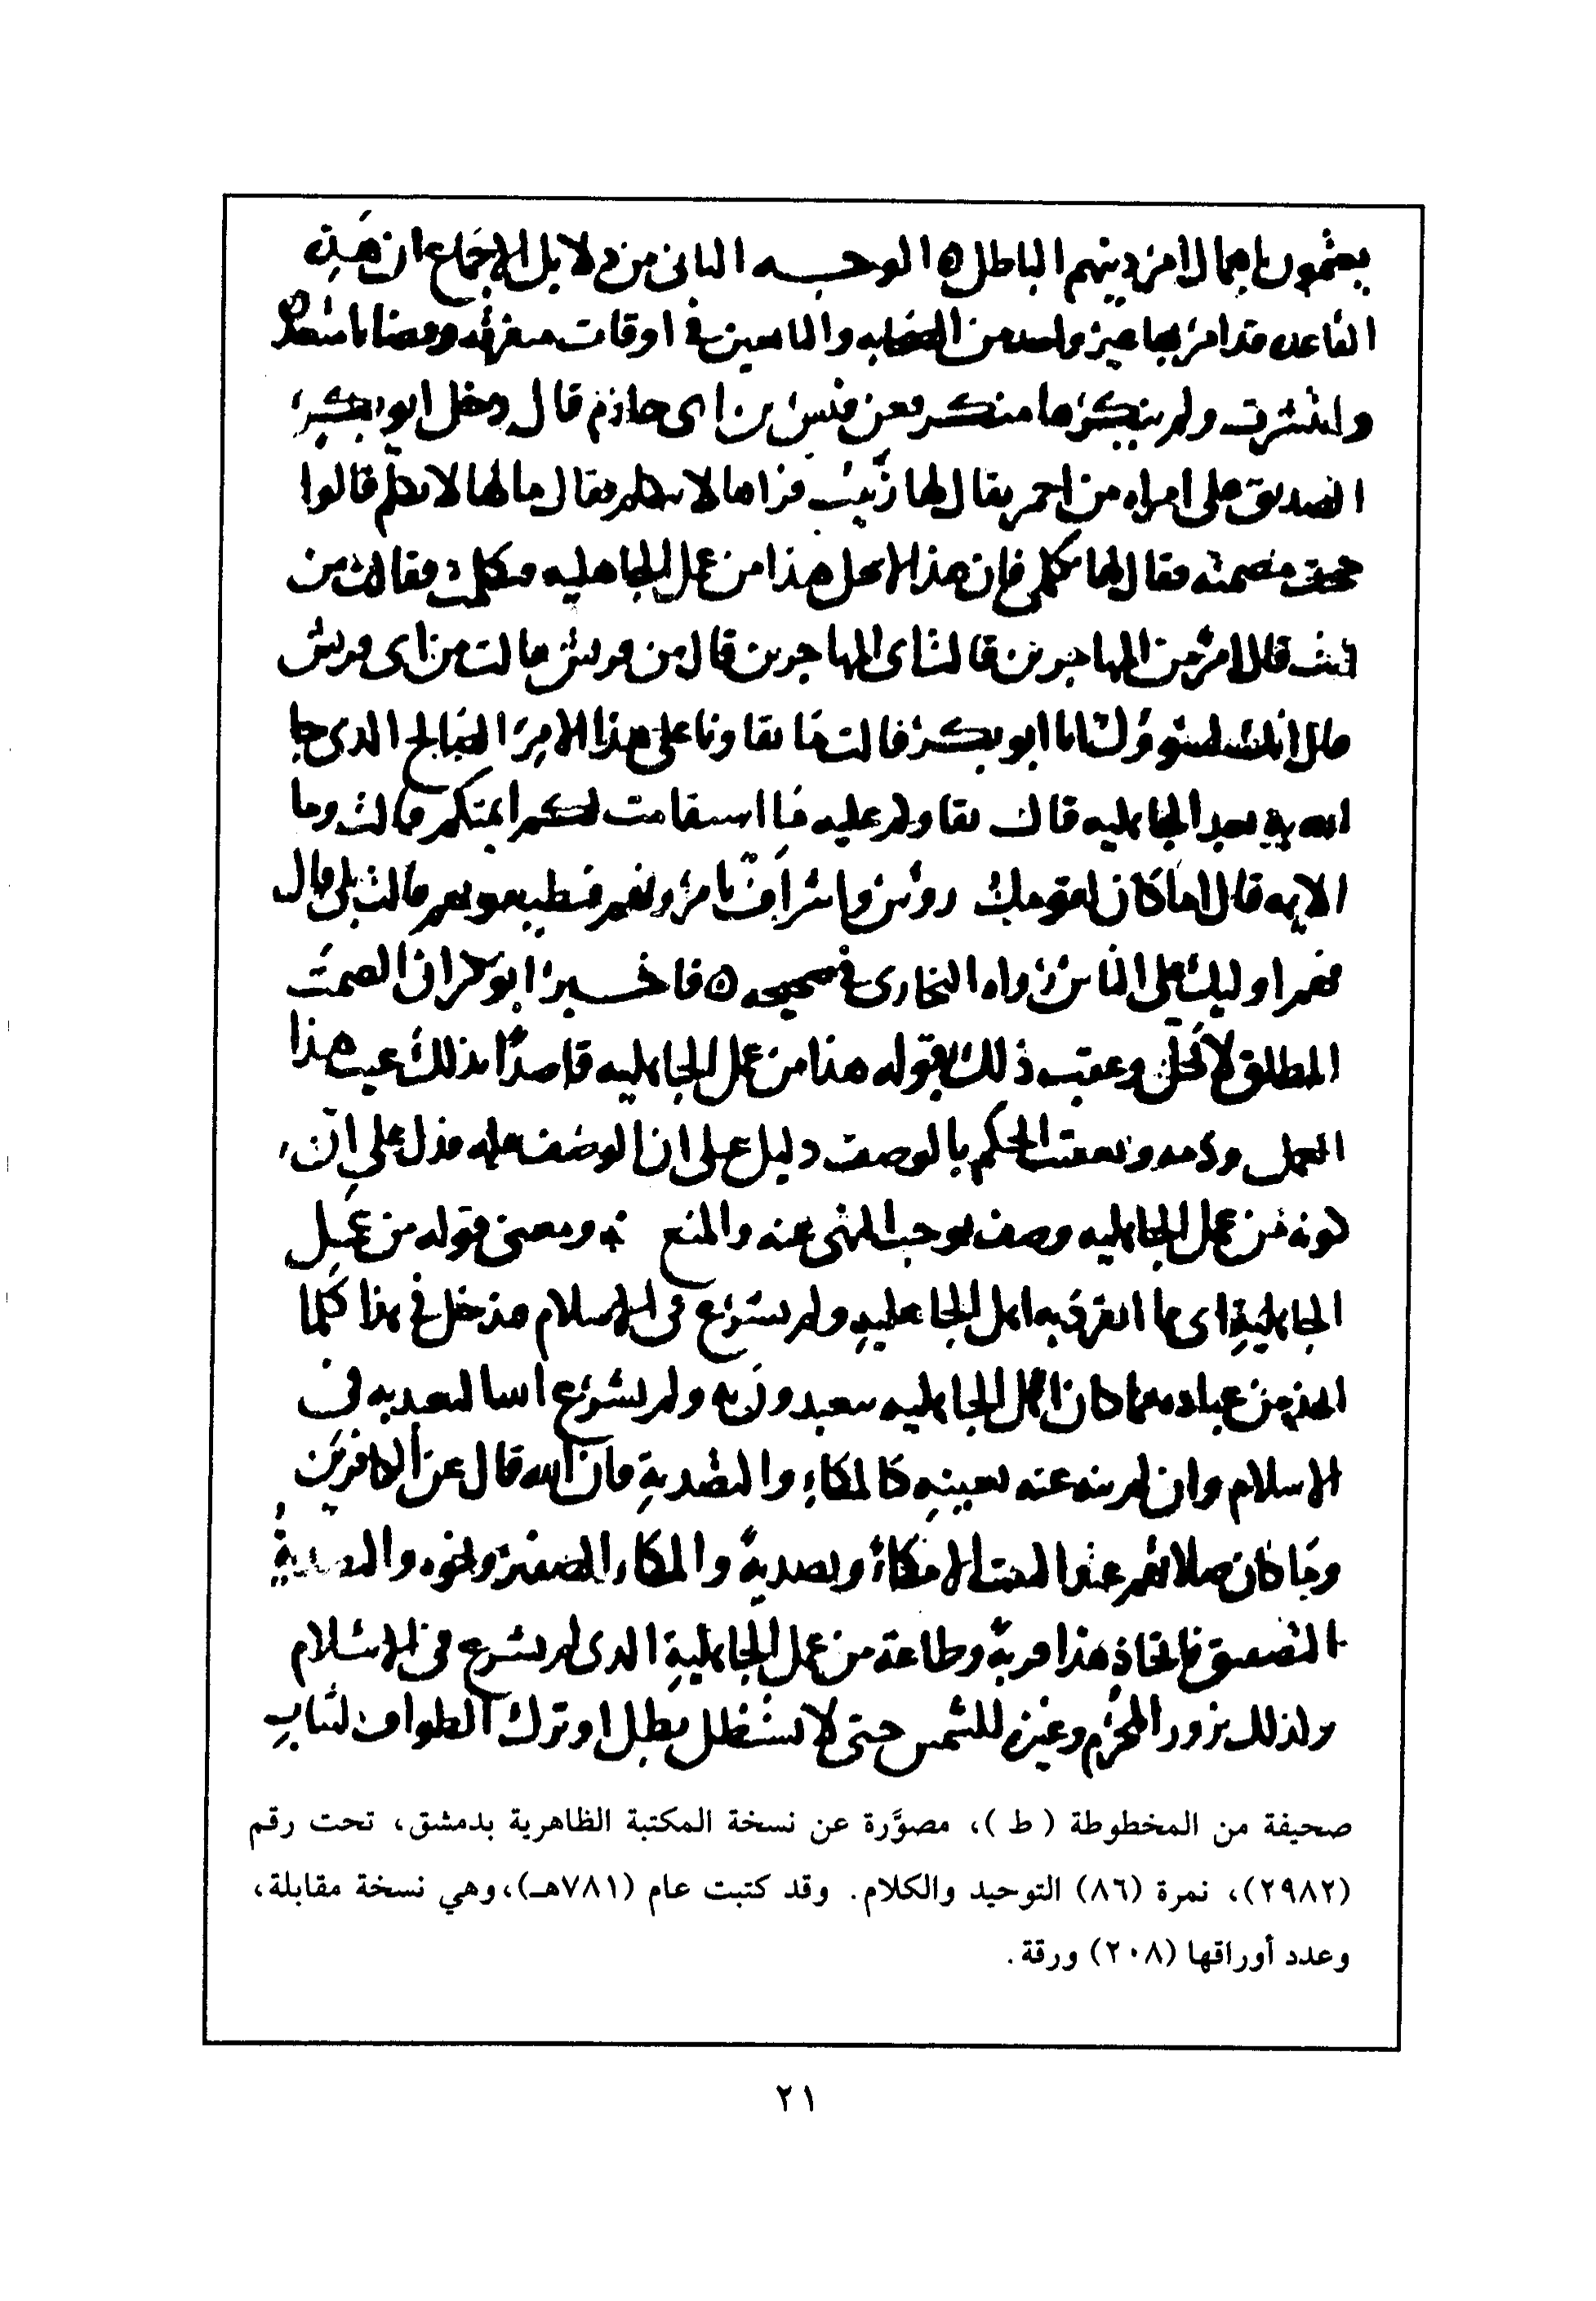 يعتمون باعمالا من دينهم الباطل ه الوجه الثاني من دلايل الاجماع ان هذه
القاعده قد امر بها غير واحد من الصحابه والتابعين في اوقات متفرقه وقضايا متعدده
وانتشرت ولم ينكرها منكر فعن قيس بن ابي حازم قال دخل ابو بكر
الصديق على امراه من احمر يقال لها زينب فراها لا تتكلم فقال ما لها لا تتكلم قالوا
حجت مصمته فقال لها تكلمي فان هذا لا يحل هذا من عمل الجاهليه فتكلمت فقالت من
انت قال امرؤ من المهاجرين قالت اي المهاجرين قال من قريش قالت من اي قريش
قال انك لسؤول انا ابو بكر قالت ما بقاونا على هذا الامر الصالح الذي جا
الله به بعد الجاهليه قال بقاوكم عليه ما استقامت لكم ايمتكم قالت وما
الايمه قال اما كان لقومك رؤس واشراف يامرونهم فيطيعونهم قالت بلى قال
فهم اوليك على الناس رواه البخاري في صحيحه ه فاخبر ابو بكر ان الصمت
المطلق لا يحل وعقب ذلك بقوله هذا من عمل الجاهليه قاصدا بذلك عيب هذا
العمل وذمه وتعقيب الحكم بالوصف دليل على ان الوصف عله فدل على ان
كونه من عمل الجاهليه وصف يوجب النهي عنه والمنع ومعنى قوله من عمل
الجاهلية اي مما انفرد به اهل الجاهليه ولم يشرع في الاسلام فدخل في هذا كلما
اتخذ من عباده مما كان اهل الجاهليه يتعبدون به ولم يشرع الله التعبد به في
الاسلام وان لم ينه عنه بعينه كالمكاء والتصدية فان الله قال عن الكافرين
وما كان صلاتهم عند البيت الا مكاءً وتصديةً والمكاء الصفير ونحوه والتصدية
التصفيق فاتخاذ هذا قربة وطاعة من عمل الجاهلية الذي لم يشرع في الاسلام
وكذلك بروز المحرم وغيره للشمس حتى لا يستظل بظل او ترك الطواف لثياب
صحيفة من المخطوطة ( ط )، مصوَّرة عن نسخة المكتبة الظاهرية بدمشق، تحت رقم
(٢٩٨٢)، نمرة (٨٦) التوحيد والكلام. وقد كتبت عام (٧٨١هـ)، وهي نسخة مقابلة،
وعدد أوراقها (٢٠٨) ورقة.
٢١